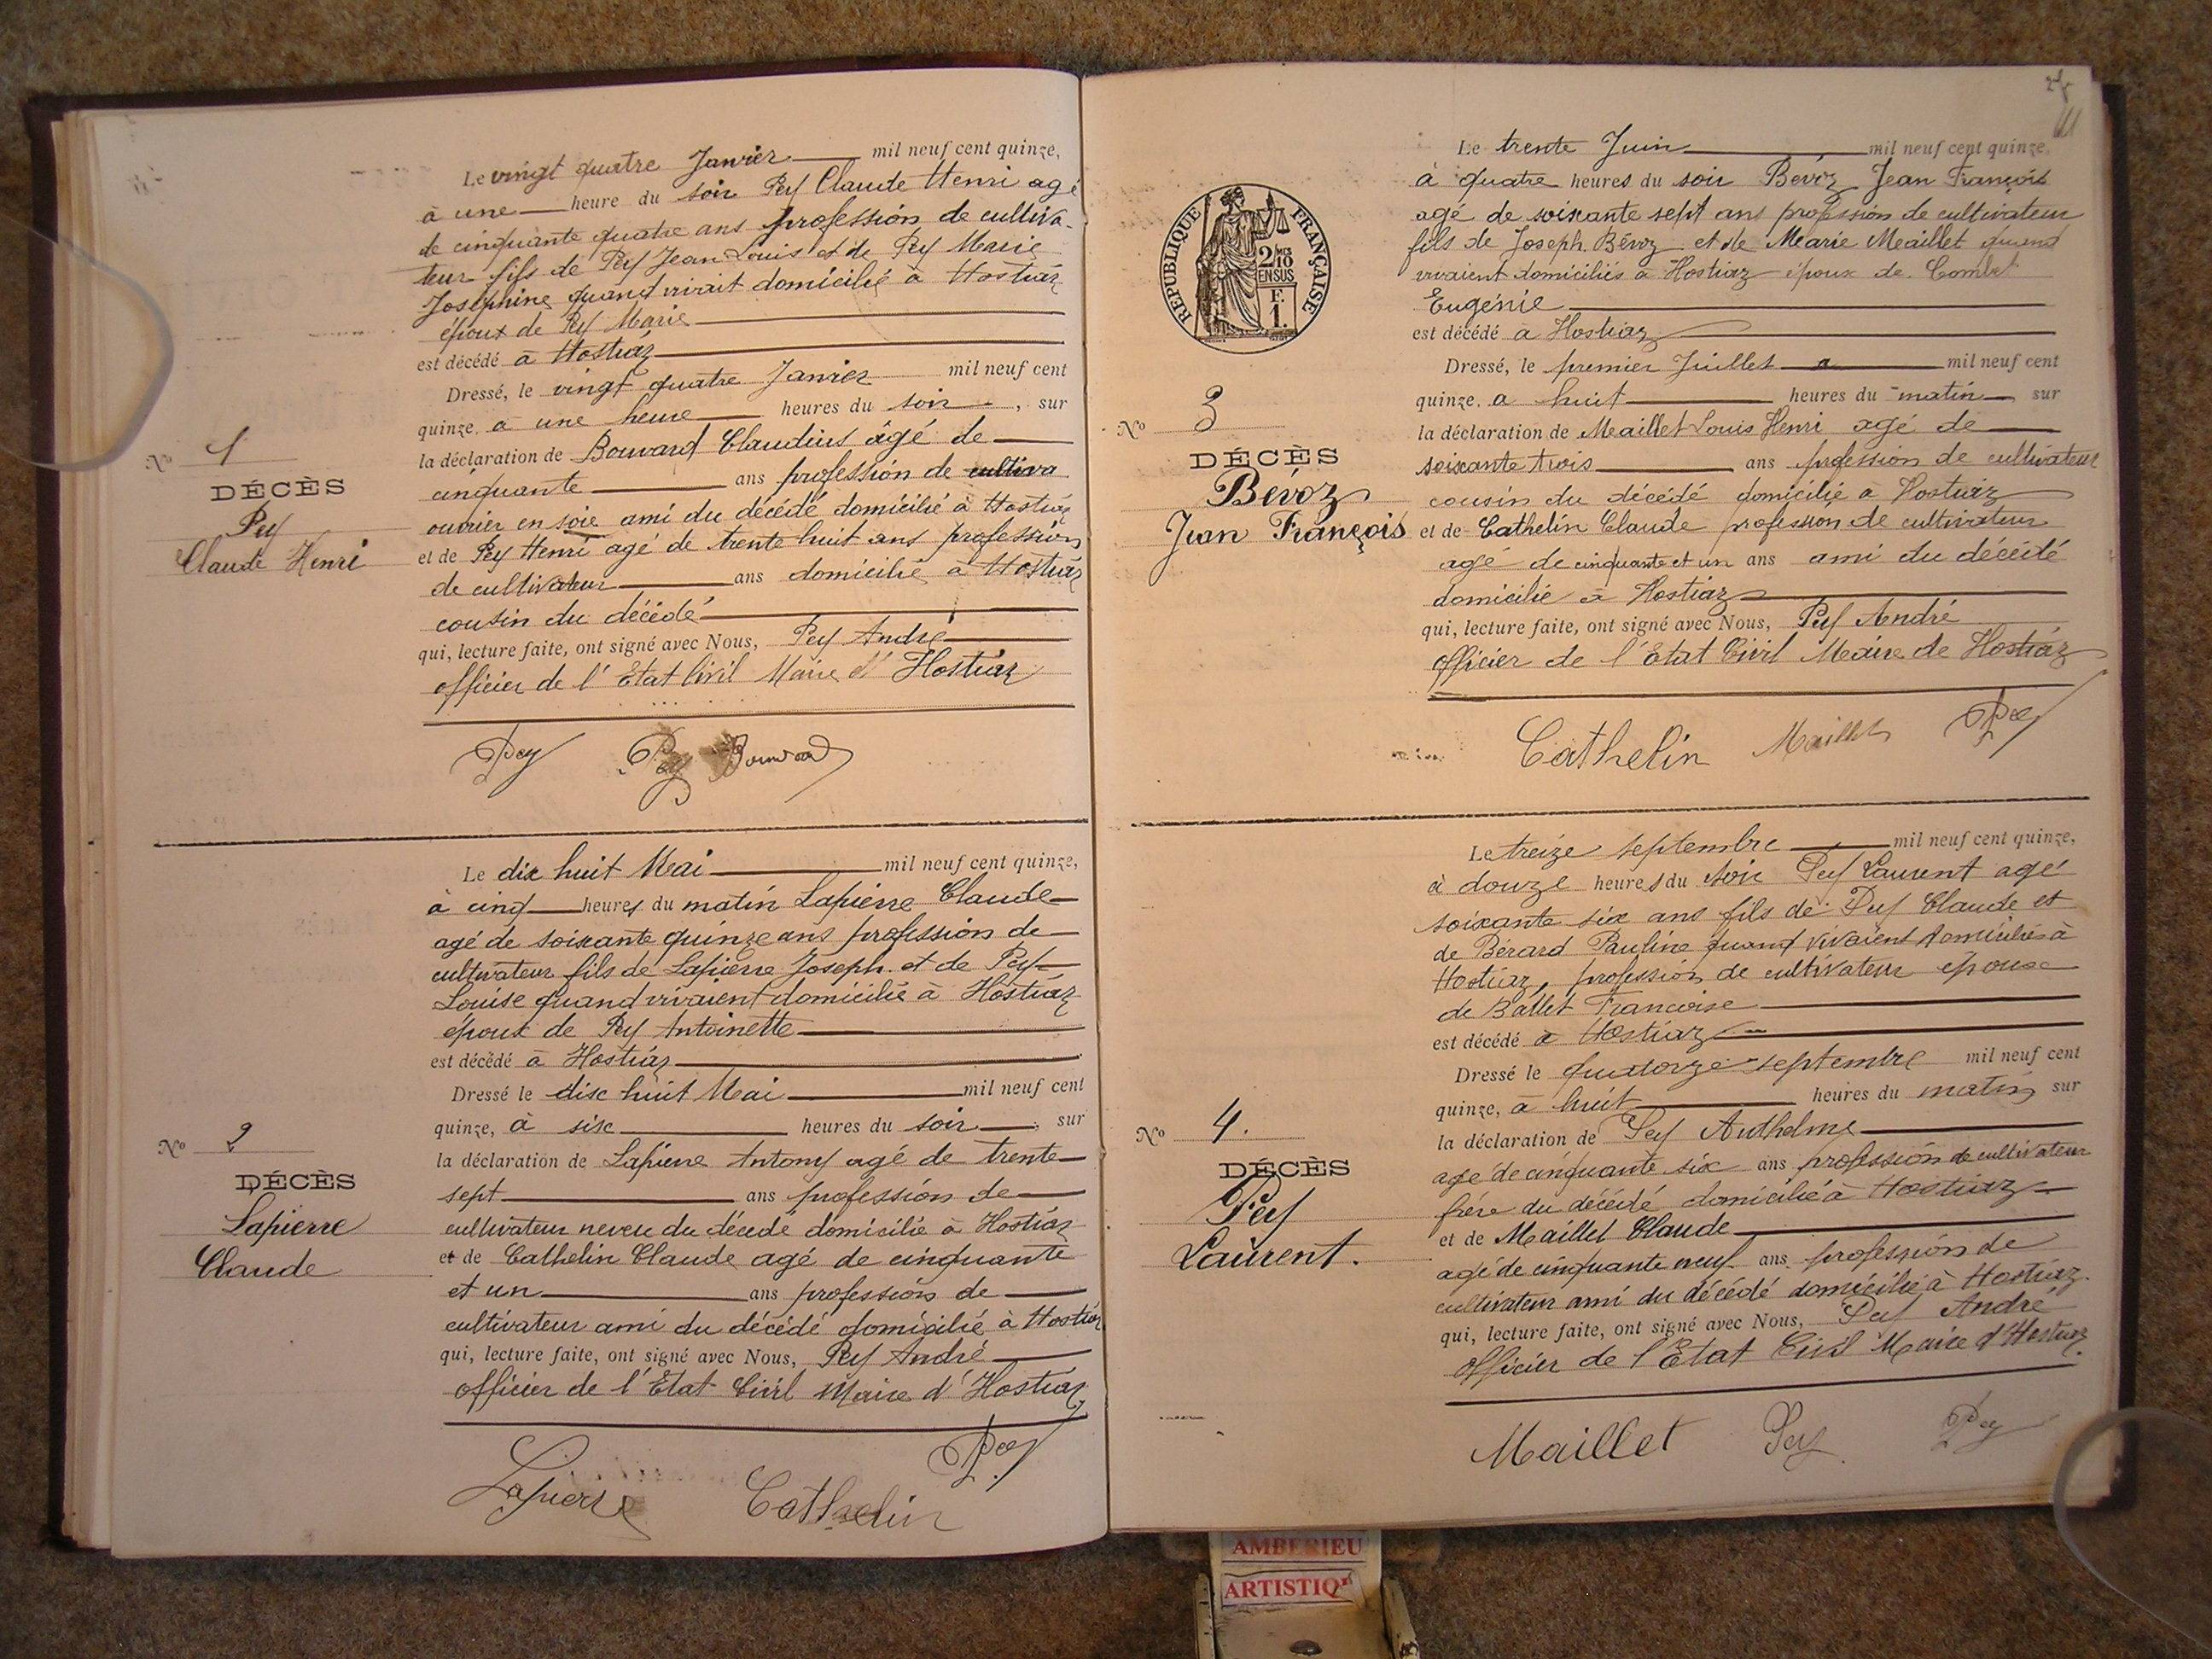 Le vingt quatre Janvier mil neuf cent quinze,
à une heure du soir Pey Claude Henri agé
de cinquante quatre ans profession de cultiva-
teur fils de Pey Jean Louis et de Pey Marie
Josephine quand vivait domicilié à Hostiaz
époux de Pey Marie
est décédé à Hostiaz
Dressé, le vingt quatre Janvier mil neuf cent
quinze, à une heure heures du soir, sur
la déclaration de Bouvard Claudius âgé de
cinquante ans profession de cultiva
ouvrier en soie ami du décédé domicilié à Hostiaz
et de Pey Henri agé de trente huit ans profession
de cultivateur ans domicilié à Hostiaz
cousin du décédé
qui, lecture faite, ont signé avec Nous, Pey André
officier de l'Etat Civil Maire d'Hostiaz
No 1
DÉCÈS
Pey
Claude Henri
Pey Pey Bouvard
Le dix huit Mai mil neuf cent quinze,
à cinq heures du matin Lapierre Claude
agé de soixante quinze ans profession de
cultivateur fils de Lapierre Joseph et de Pey
Louise quand vivaient domicilié à Hostiaz
époux de Pey Antoinette
est décédé à Hostiaz
Dressé le dix huit Mai mil neuf cent
quinze, à six heures du soir, sur
la déclaration de Lapierre Antony agé de trente
sept ans profession de
cultivateur neveu du décédé domicilié à Hostiaz
et de Cathelin Claude agé de cinquante
et un ans profession de
cultivateur ami du décédé domicilié à Hostiaz
qui, lecture faite, ont signé avec Nous, Pey André
officier de l'Etat Civil Maire d'Hostiaz
No 2
DÉCÈS
Lapierre
Claude
Lapierre Cathelin Pey
REPUBLIQUE FRANÇAISE
2/10
EN SUS
F.
1.
Le trente Juin mil neuf cent quinze,
à quatre heures du soir Bévoz Jean François
agé de soixante sept ans profession de cultivateur
fils de Joseph Bévoz et de Marie Maillet quand
vivaient domiciliés à Hostiaz époux de Combet
Eugénie
est décédé à Hostiaz
Dressé, le premier Juillet mil neuf cent
quinze, a huit heures du matin sur
la déclaration de Maillet Louis Henri agé de
soixante trois ans profession de cultivateur
cousin du décédé domicilié à Hostiaz
et de Cathelin Claude profession de cultivateur
agé de cinquante et un ans ami du décédé
domicilié à Hostiaz
qui, lecture faite, ont signé avec Nous, Pey André
officier de l'Etat Civil Maire de Hostiaz
No 3
DÉCÈS
Bévoz
Jean François
Cathelin Maillet Pey
Le treize septembre mil neuf cent quinze,
à douze heures du soir Pey Laurent agé
soixante six ans fils de Pey Claude et
de Bérard Pauline quand vivaient domicilié à
Hostiaz, profession de cultivateur époux
de Ballet Francoise
est décédé à Hostiaz
Dressé le quatorze septembre mil neuf cent
quinze, à huit heures du matin sur
la déclaration de Pey Anthelme
agé de cinquante six ans profession de cultivateur
frére du décédé domicilié à Hostiaz
et de Maillet Claude
agé de cinquante neuf ans profession de
cultivateur ami du décédé domicilié à Hostiaz.
qui, lecture faite, ont signé avec Nous, Pey André
officier de l'Etat Civil Maire d'Hostiaz.
No 4.
DÉCÈS
Pey
Laurent.
Maillet Pey Pey
AMBERIEU
ARTISTIQ